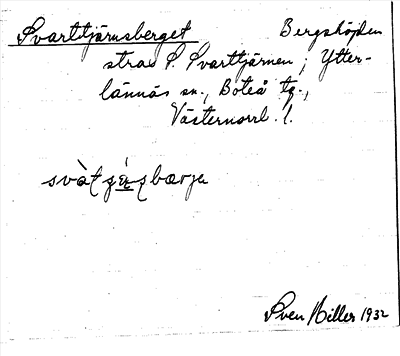 Svarttjärnsberget Bergshöjden
strax S. Svarttjärnen; Ytter-
lännäs sn., Boteå tg.,
Västernorrl. l.
Sven Hiller 1932